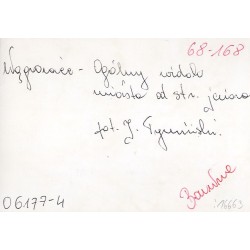 68-168
Wągrowiec - Ogólny widok
miasta od str. jeziora
fot. J. Tymiński.
06177-4
16663